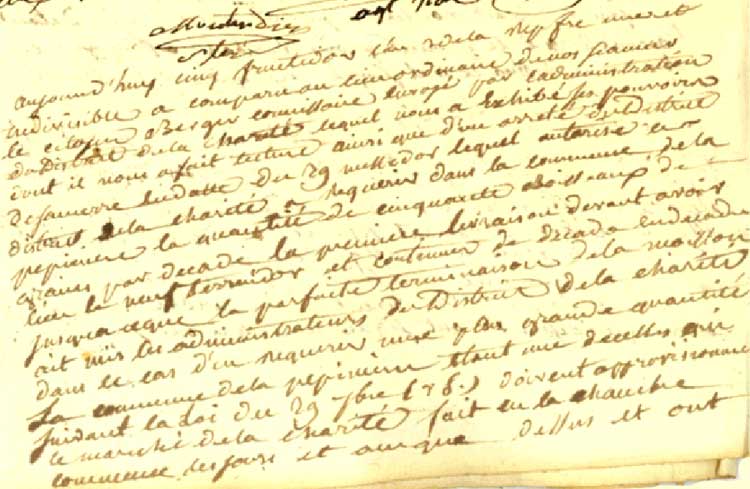 aujourd'huy cinq fructidor l'an 2 de la Rep fre une et
indivisible a comparu au lieu ordinaire de nos seances
le citoyen Berger commissaire envoyé par l'administration
du District de la charité lequel nous a Exhibé ses pouvoirs
dont il nous a fait lecture ainsi que d'un arreté du District
de en datte du 29 messidor lequel autorise ce
district de la charité a requerir dans la commune de la
pepiniere la quantité de cinquante Boisseaux de
graines par decade la premiere livraison devant avoir
lieu le neuf termidor et continuer de decade en decade
jusqua ceque la parfaite terminaison de la moisson
ait mis les administrateurs du District de la charité
dans le cas d'en requerir une plus grande quantité
La commune de la pepiniere etant une decelles qui
suivant la Loi du 29 7bre doivent approvisionner
le marché de la charité fait en la chambre
commune les jours et an que dessus et ont